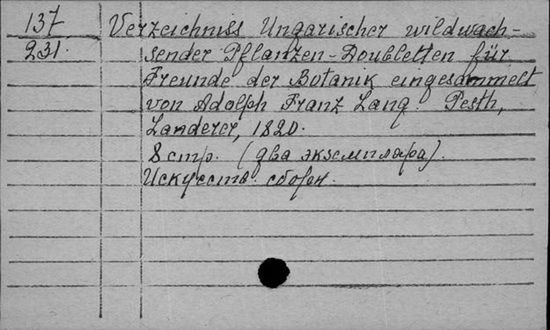 137 Verzeichniss Ungarischer wildwach-
231. sender Pflanzen-Doubletten für
Freunde der Botanik eingesammelt
von Adolph Franz Lang. Pesth,
Landerer, 1820.
8 стр. (два экземпляра).
Искусств. сборн.